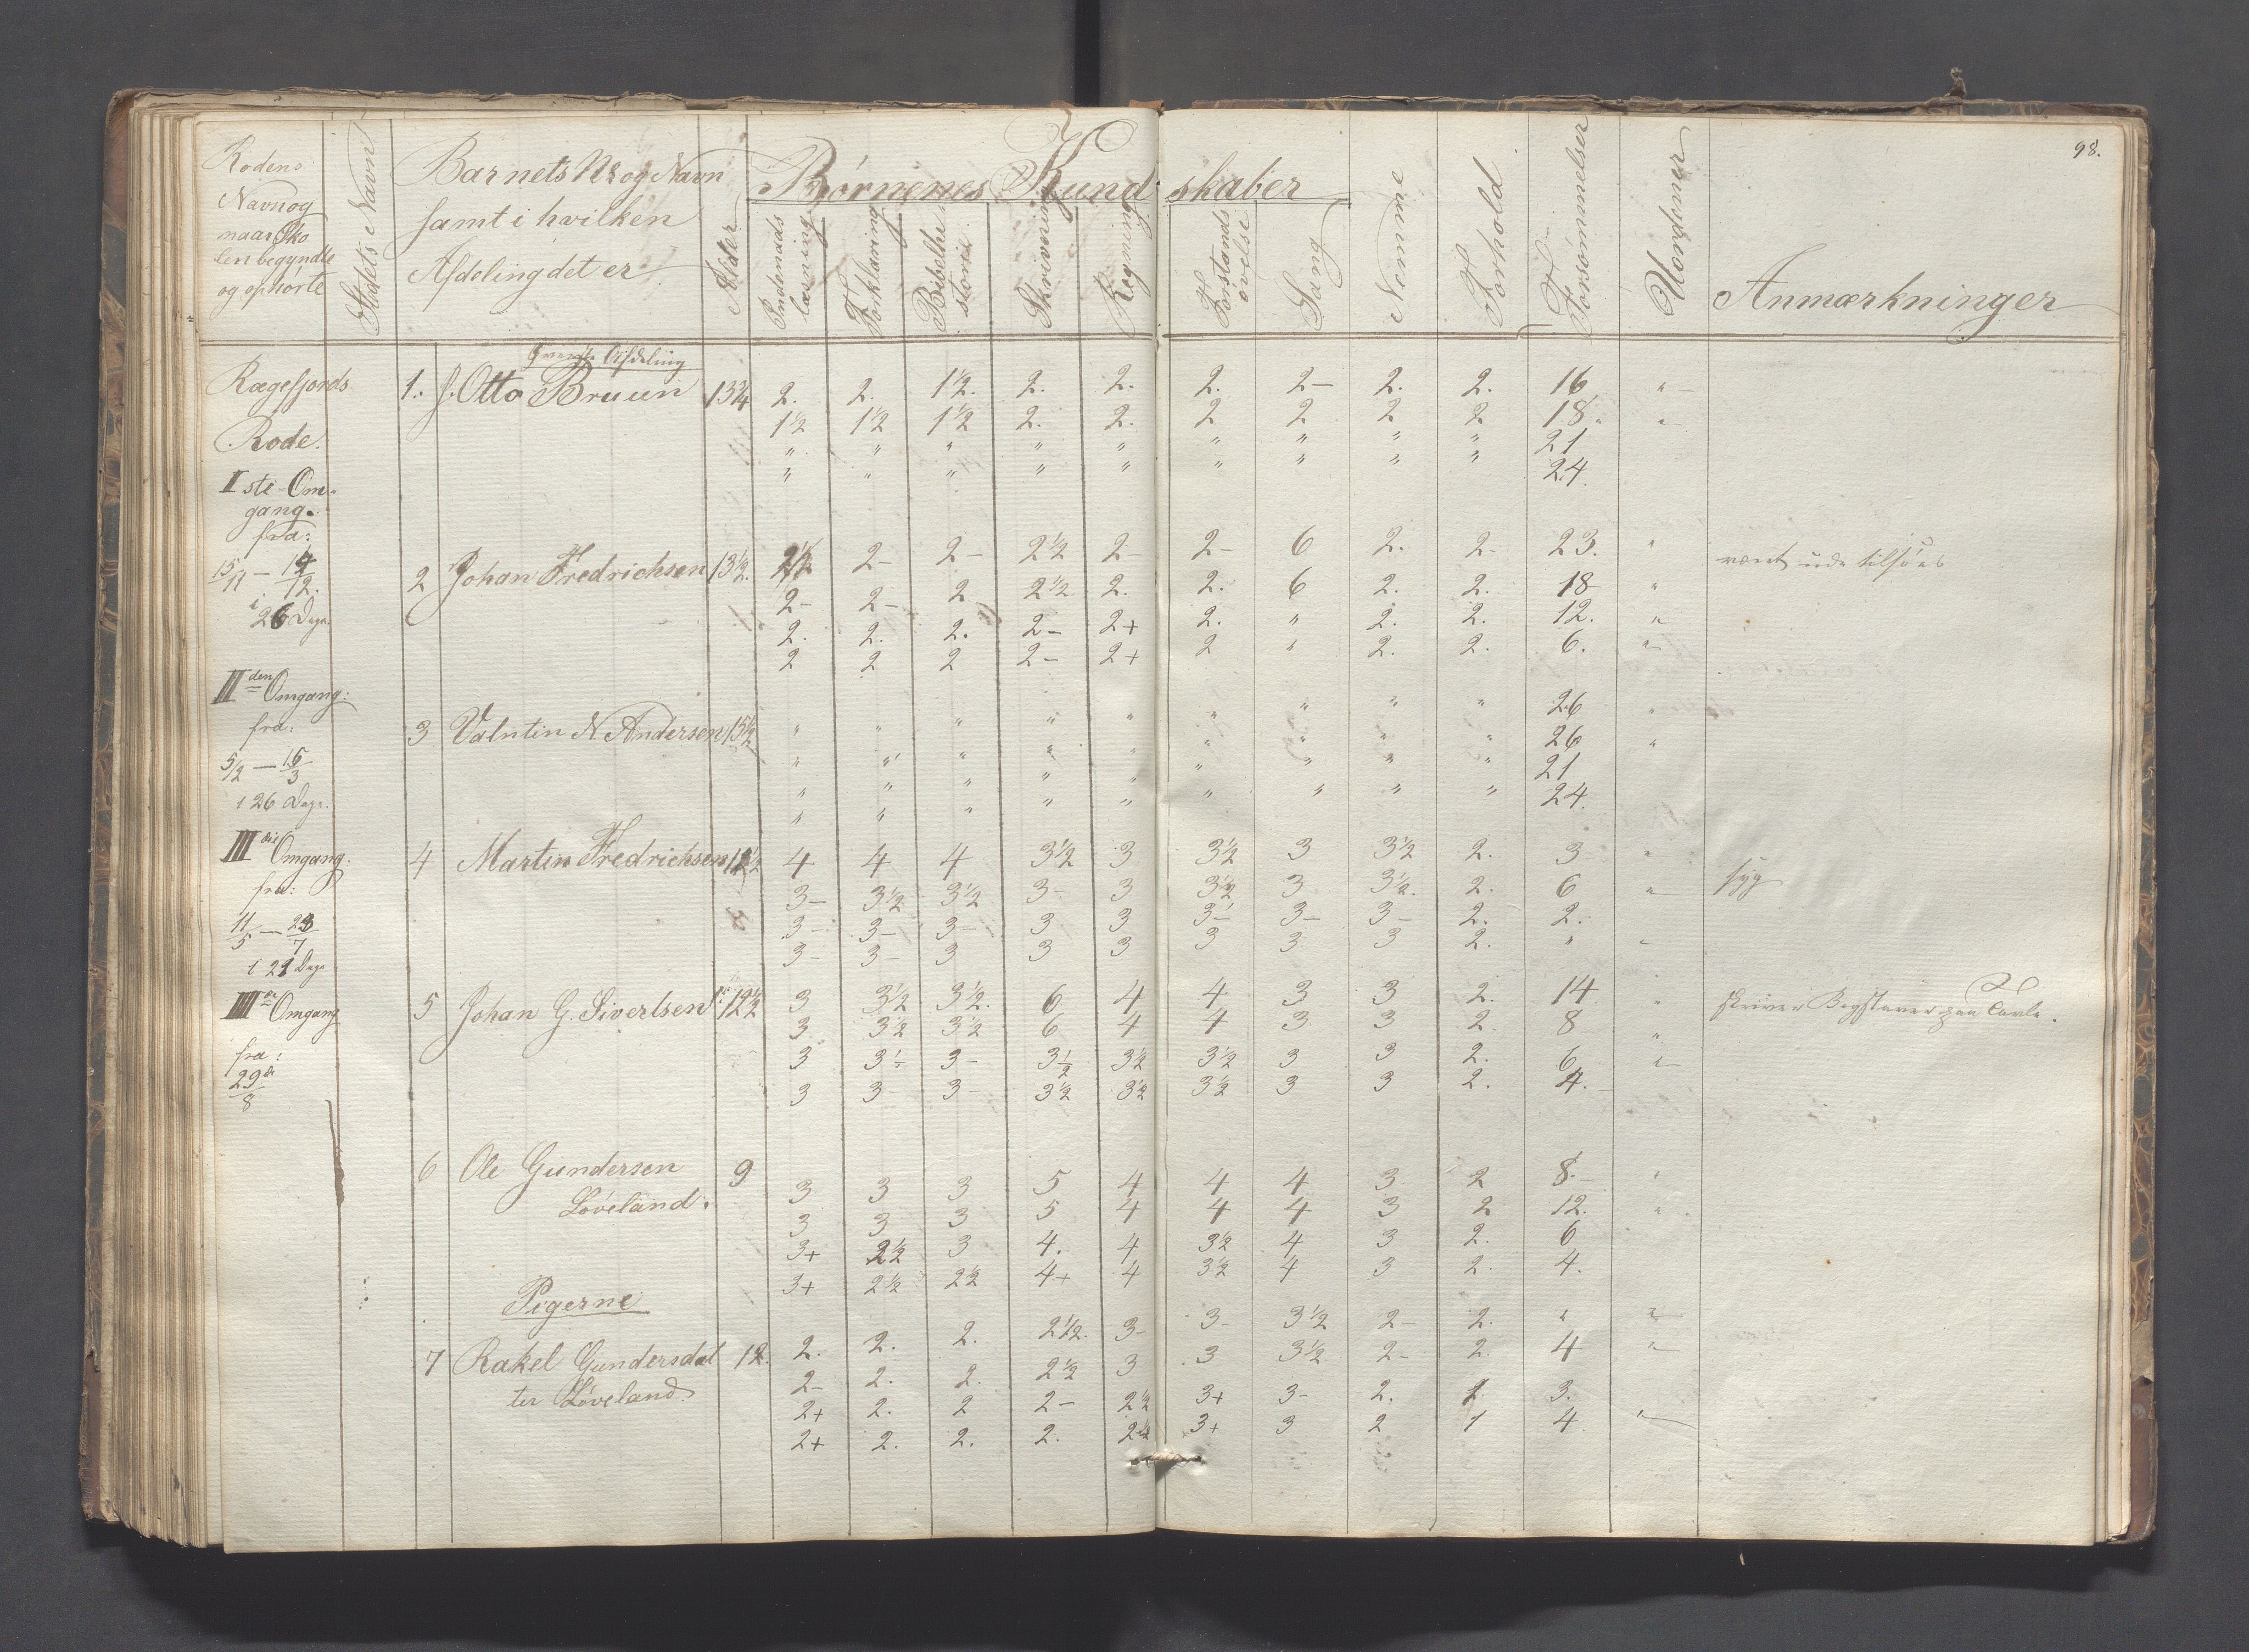 98.
Rodens
Navn og
naar Sko
len begyndte
og ophørte
Stedets Navn
Barnets Nr og Navn
samt i hvilken
Afdeling det er
Alder
Børnenes Kundskaber
Indenads
læsning
Forklaring
Bibelhi
storie
Skrivning
Regning
Forstands
øvelse
Sang
Nemme
Forhold
Forsømmelser
Uordener
Anmærkninger
Øverste Afdeling
Rægefjords 1. J. Otto Bruun 13 3/4 2. 2. 1½. 2. 2. 2. 2- 2. 2. 16 "
1½ 1½ 1½ 2. 2. 2 2 2 2 18. "
Rode. " " " " " " " " " 21
" " " " " " " " " 24.
I ste Om-
gang.
fra:
15/11 - 14/12.
i
26 Dage.
2 Johan Fredrichsen 13½. 2½ 2- 2- 2½ 2- 2- 6 2. 2. 23. " været ude tilsøes
2- 2- 2 2½ 2. 2. 6 2. 2. 18 "
2. 2. 2. 2- 2+ 2. " 2. 2. 12. "
2 2 2 2- 2+ 2 " 2. 2. 6. "
II den Omgang:
fra:
5/2 - 16/3
i 26 Dage.
3 Valntin N Andersen 15½ " " " " " " " " " 26 "
" " " " " " " " " 26 "
" " " " " " " " " 21
" " " " " " " " " 24.
III die Omgang.
fra:
11/5 - 23/7
i 21 Dage
4 Martin Fredrichsen 12½ 4 4 4 3½ 3 3½ 3 3½ 2. 3 "
3- 3½ 3½ 3- 3 3½ 3 3½. 2. 6 " syg
3- 3- 3- 3 3 3- 3- 3- 2. 2.
3- 3- 3 3 3 3 3 3 2. " "
IIII de Omgang
fra:
29de/8
5 Johan G. Sivertsen 12½ 3 3½ 3½. 6 4 4 3 3 2. 14 " skriver Bogstaver paa Tavle.
3 3½ 3½ 6 4 4 3 3 2. 8 "
3 3½ 3- 3½ 3½ 3½ 3 3 2. 6 "
3 3 3- 3½ 3½ 3½ 3 3 2. 4.
6 Ole Gundersen 9 3 3 3 5 4 4 4 3 2 8. "
Løveland. 3 3 3 5 4 4 4 3 2 12. "
3+ 2½ 3 4. 4 3½ 4 3 2. 6
3+ 2½ 2½ 4+ 4 3½ 4 3 2. 4.
Pigerne
7 Rakel Gundersdat 12. 2. 2. 2. 2½. 3- 3- 3½ 2- 2. " "
ter Løveland. 2- 2. 2. 2½ 3 3 3½ 2- 2. 4 "
2+ 2. 2 2- 2½ 3+ 3- 2. 1 3.
2+ 2. 2. 2. 2½ 3+ 3 2 1 4. "